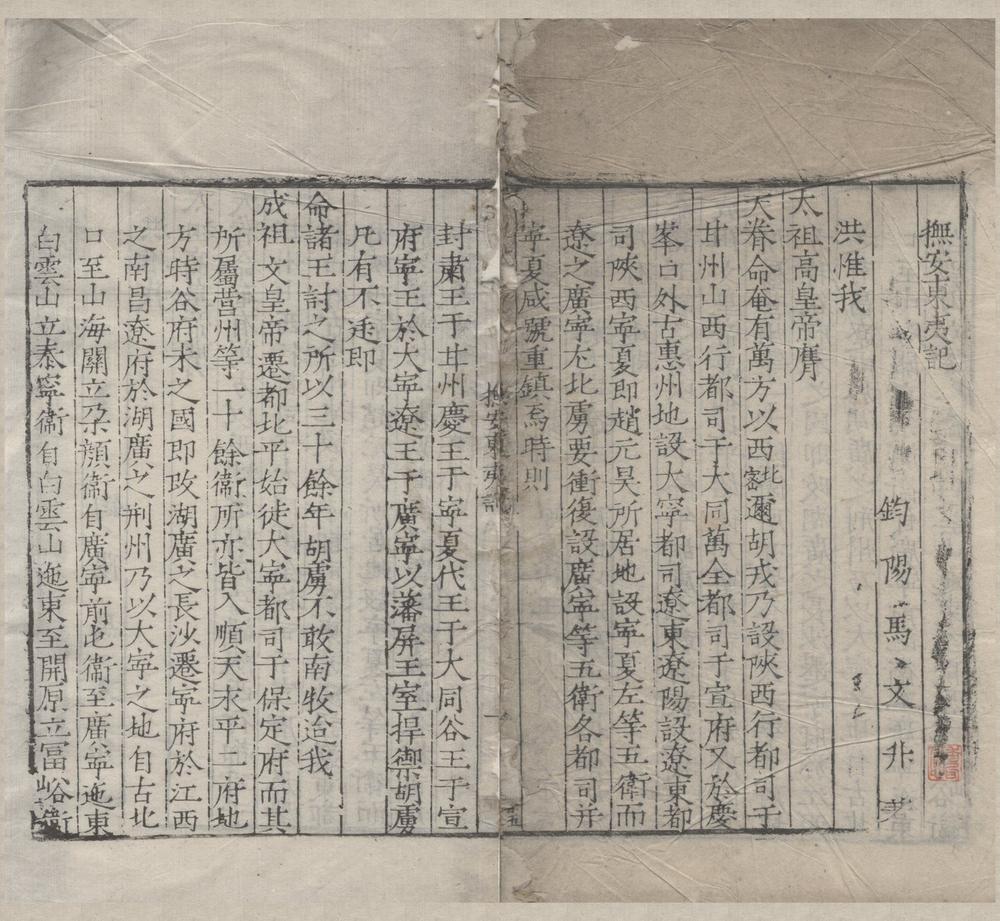 撫安東夷記
鈞陽馬文升著
洪惟我
太祖高皇帝膺
天眷命奄有萬方以西北密邇胡戎乃設陝西行都司于
甘州山西行都司于大同萬全都司于宣府又於慶
峯口外古惠州地設大寧都司遼東遼陽設遼東都
司陝西寧夏即趙元昊所居地設寧夏左等五衛而
遼之廣寧尤北虜要衝復設廣寧等五衛各都司并
寧夏咸號重鎮焉時則
撫安東夷記
一
五
封肅王于甘州慶王于寧夏代王于大同谷王于宣
府寧王於大寧遼王于廣寧以藩屏王室捍禦胡虜
凡有不廷即
命諸王討之所以三十餘年胡虜不敢南牧迨我
成祖文皇帝遷都北平始徙大寧都司于保定府而其
所屬營州等一十餘衛所亦皆入順天永平二府地
方時谷府未之國即改湖廣之長沙遷寧府於江西
之南昌遼府於湖廣之荆州乃以大寧之地自古北
口至山海關立朶顏衛自廣寧前屯衛至廣寧迤東
白雲山立泰寧衛自白雲山迤東至開原立冨峪衛